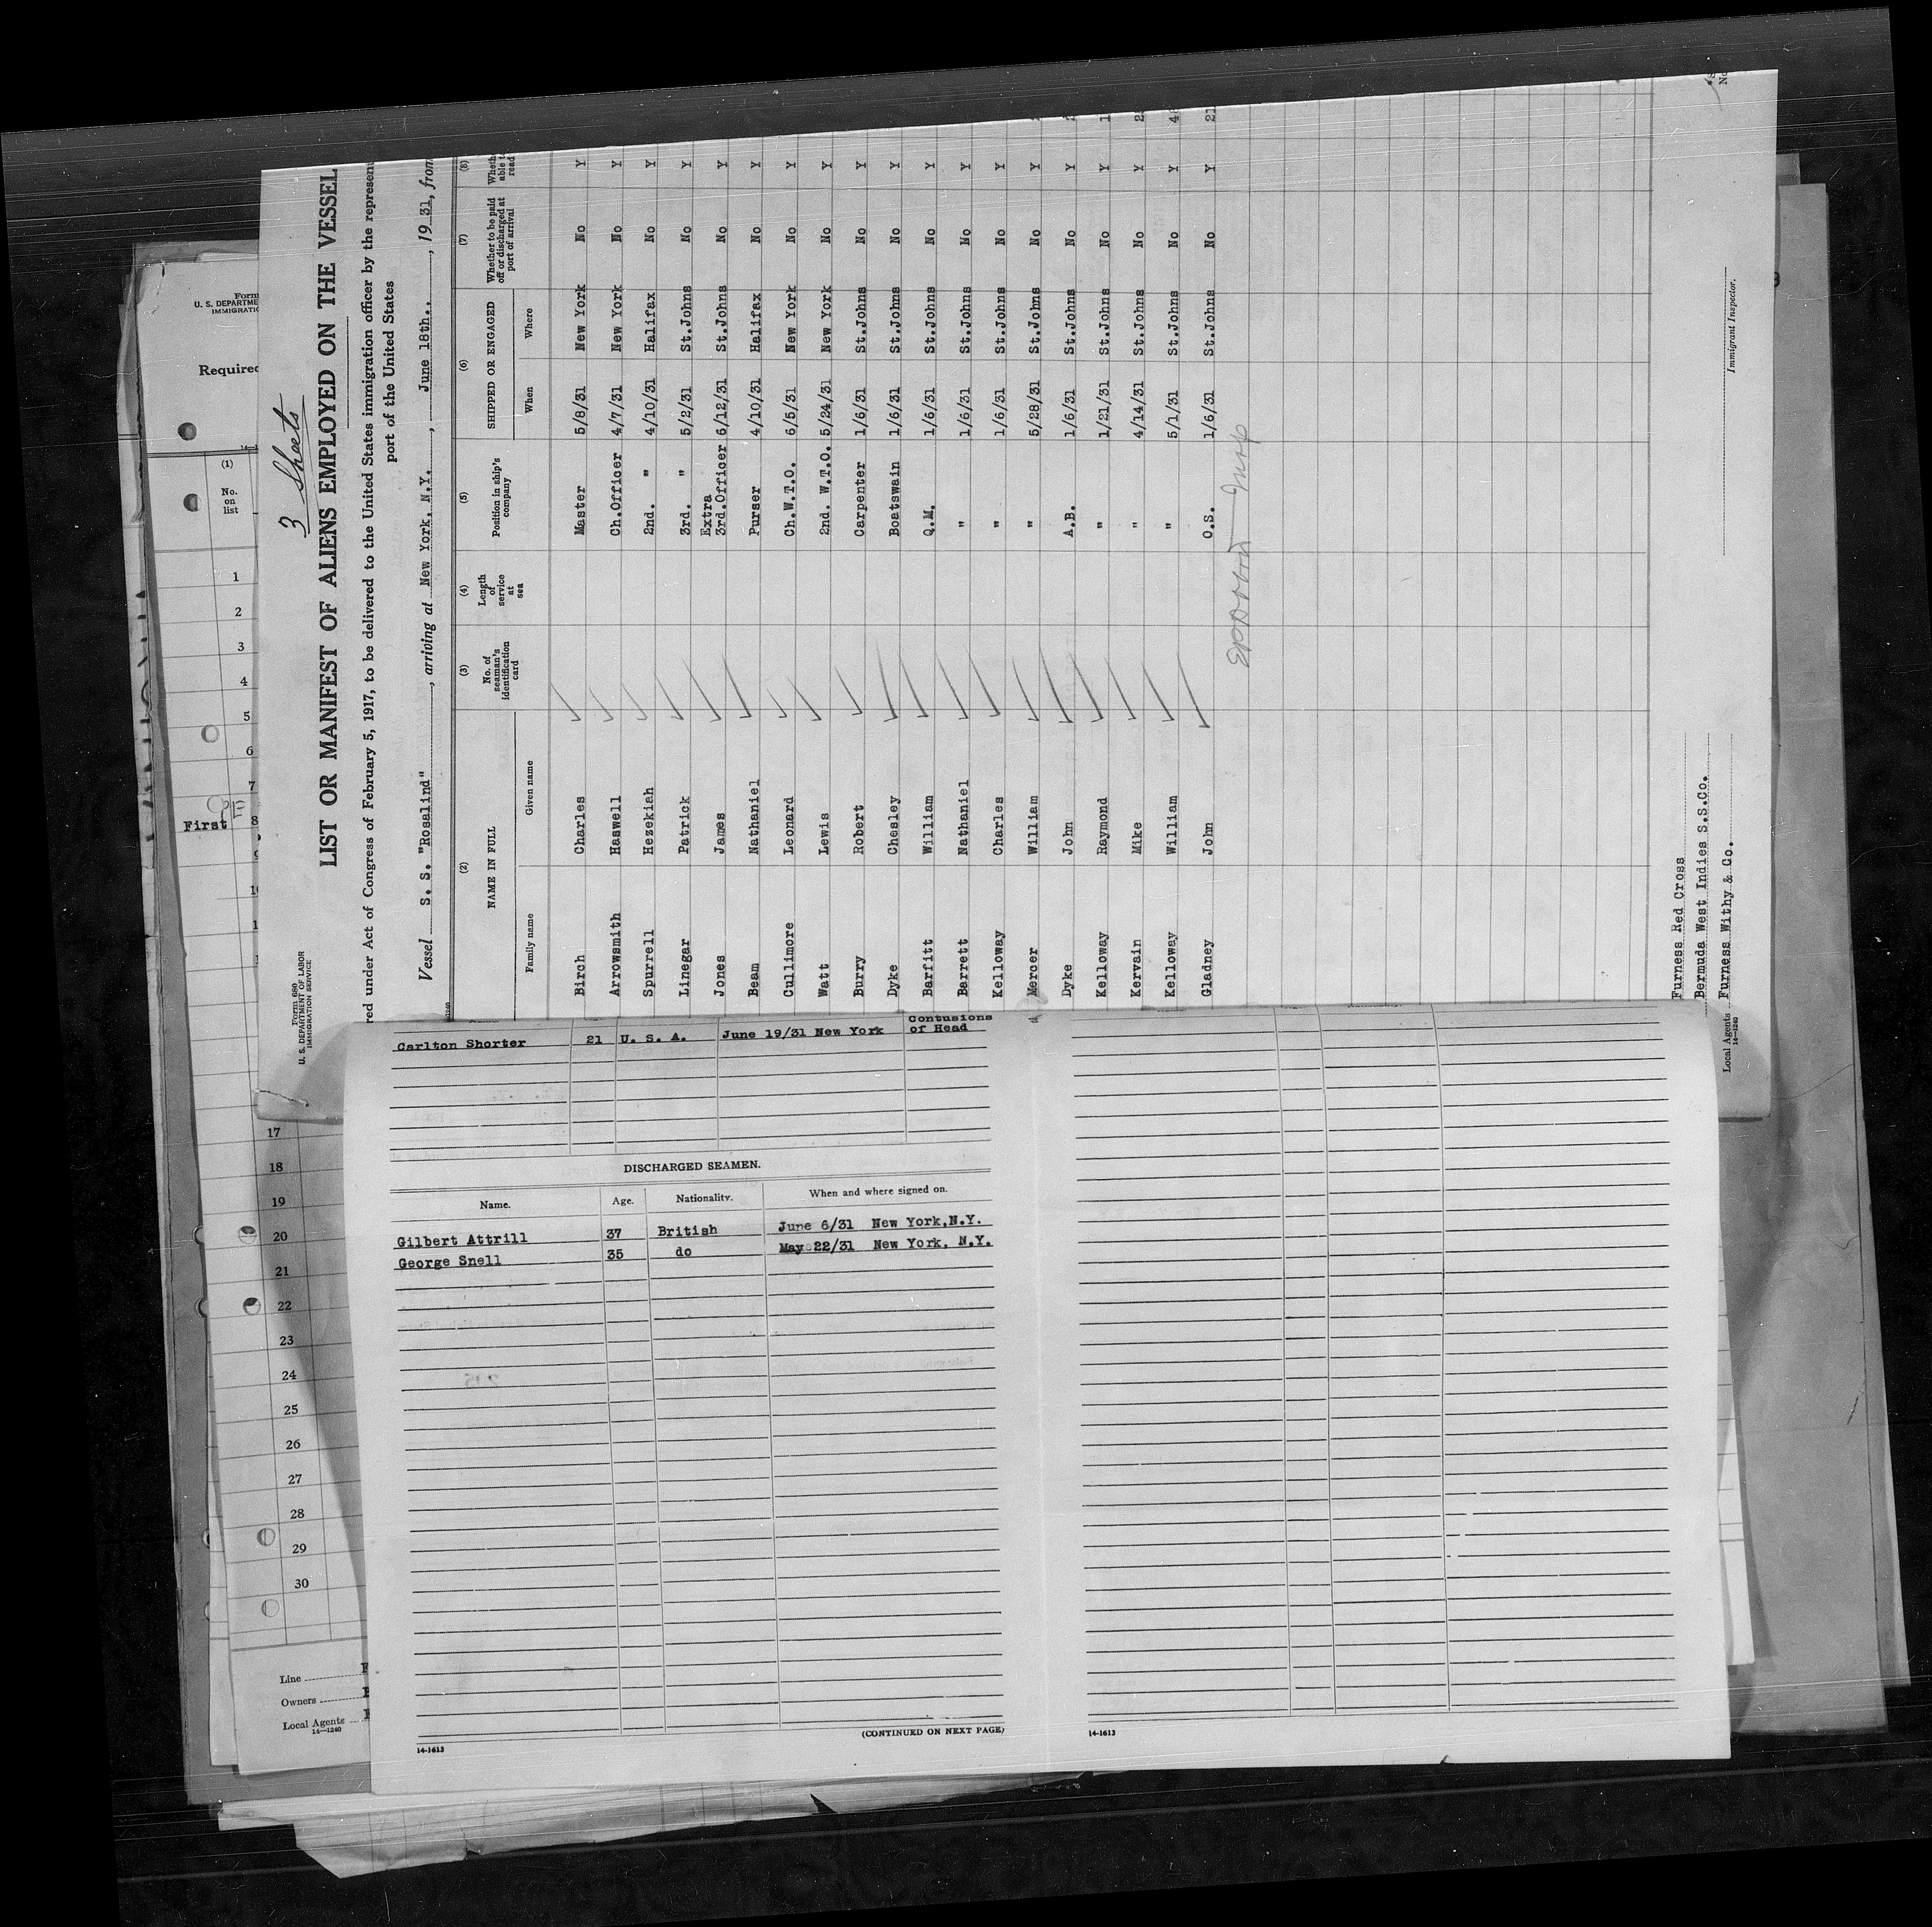 3 Sheets
Form 680
U. S. DEPARTMENT OF LABOR
IMMIGRATION SERVICE
LIST OR MANIFEST OF ALIENS EMPLOYED ON THE VESSEL
red under Act of Congress of February 5, 1917, to be delivered to the United States immigration officer by the represen
port of the United States
Vessel S. S. "Rosalind", arriving at New York, N.Y., June 18th., 1931, from
(2) (3) (4) (5) (6) (7) (8)
NAME IN FULL No. of seaman's identification card Length of service at sea Position in ship's company SHIPPED OR ENGAGED Whether to be paid off or discharged at port of arrival Wheth able t read
Family name Given name When Where
Birch Charles Master 5/8/31 New York No Y
Arrowsmith Haswell Ch.Officer 4/7/31 New York No Y
Spurrell Hezekiah 2nd. " 4/10/31 Halifax No Y
Linegar Patrick 3rd. " 5/2/31 St.Johns No Y
Jones James Extra 3rd.Officer 6/12/31 St.Johns No Y
Beam Nathaniel Purser 4/10/31 Halifax No Y
Cullimore Leonard Ch.W.T.O. 6/5/31 New York No Y
Watt Lewis 2nd. W.T.O. 5/24/31 New York No Y
Burry Robert Carpenter 1/6/31 St.Johns No Y
Dyke Chesley Boatswain 1/6/31 St.Johns No Y
Barfitt William Q.M. 1/6/31 St.Johns No Y
Barrett Nathaniel " 1/6/31 St.Johns No Y
Kelloway Charles " 1/6/31 St.Johns No Y
Mercer William " 5/28/31 St.Johns No Y
Dyke John A.B. 1/6/31 St.Johns No Y
Kelloway Raymond " 1/21/31 St.Johns No Y 1
Kervain Mike " 4/14/31 St.Johns No Y 2
Kelloway William " 5/1/31 St.Johns No Y 4
Gladney John O.S. 1/6/31 St.Johns No Y 21
Furness Red Cross
Bermuda West Indies S.S.Co.
Local Agents Furness Withy & Co.
14-1240
Immigrant Inspector.
Form
U. S. DEPARTME
IMMIGRATIO
Required
(1)
No.
on
list
1
2
3
4
5
6
7
First 8
17
18
19
20
21
22
23
24
25
26
27
28
29
30
Line
Owners
Local Agents
14-1240
Carlton Shorter 21 U. S. A. June 19/31 New York Contusions of Head
DISCHARGED SEAMEN.
Name. Age. Nationality. When and where signed on.
Gilbert Attrill 37 British June 6/31 New York,N.Y.
George Snell 35 do May 22/31 New York, N.Y.
(CONTINUED ON NEXT PAGE)
14-1613
14-1613